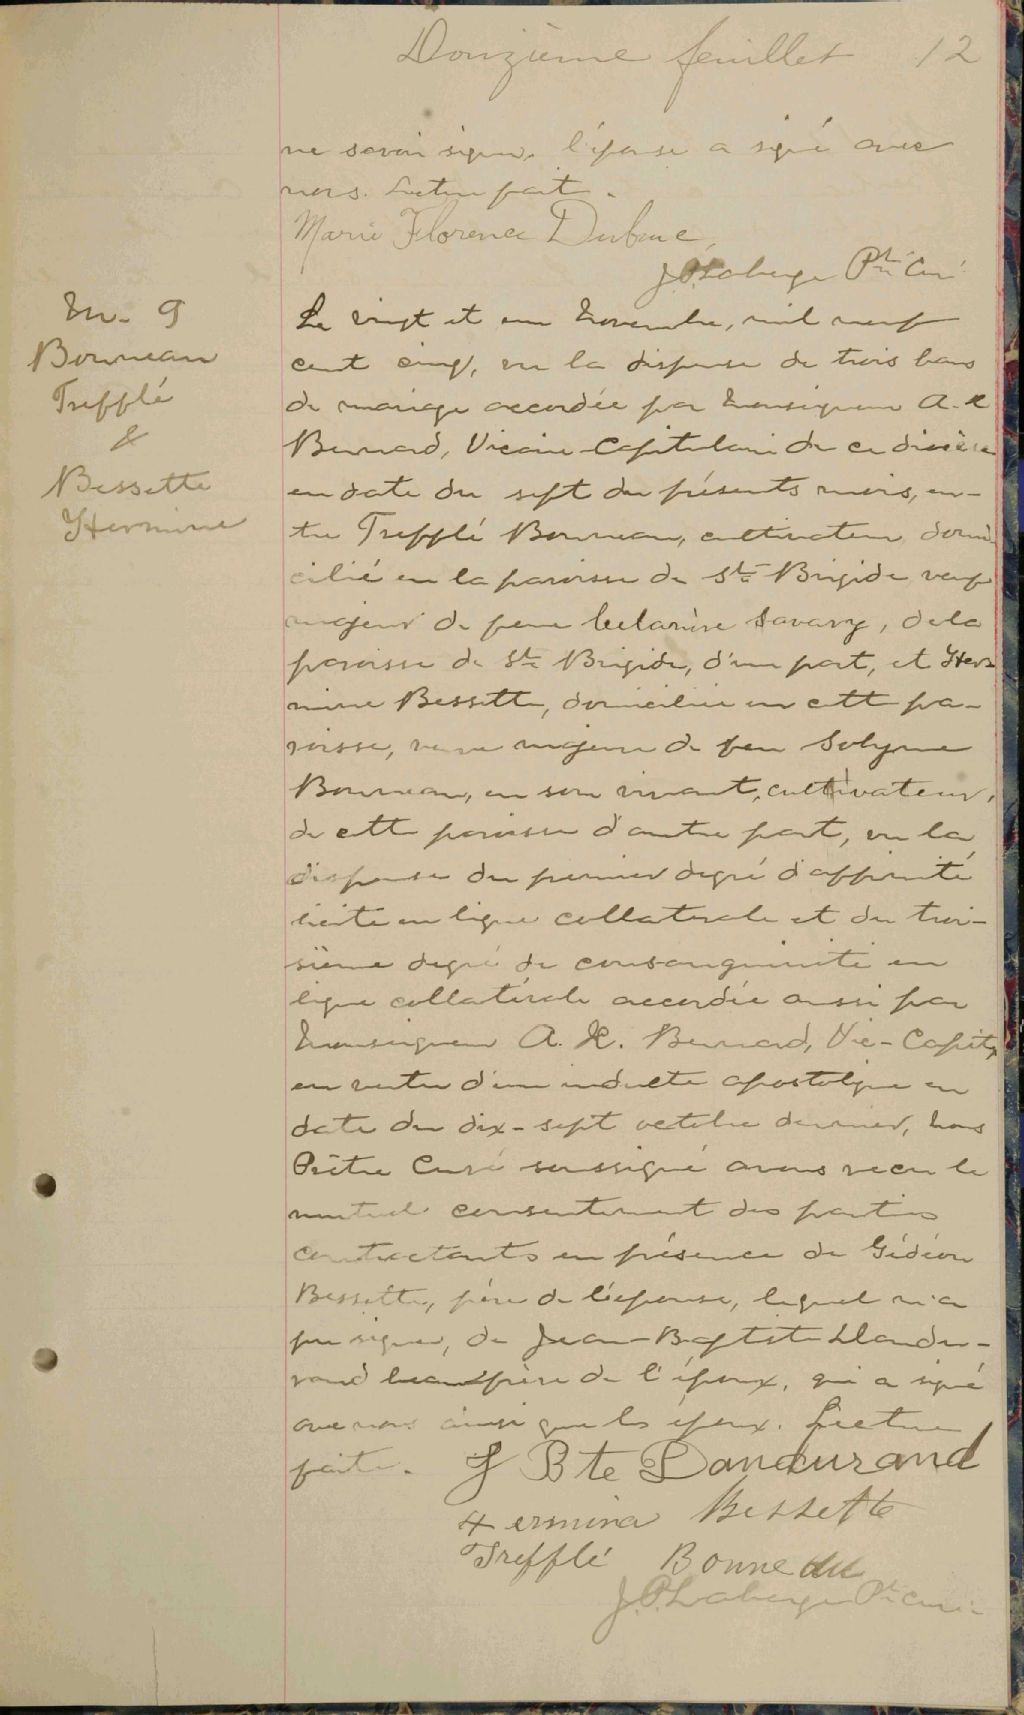 Douzième feuillet 12
ne savoir signer. l'épouse a signé avec
nous. Lecture fait.
Marie Florence Dubuc
J.P. Laberge Ptre Curé
M. 9
Bonneau
Trefflé
&
Bessette
Hermine
Le vingt et un Novembre, mil neuf
cent cinq, vu la dispense de trois bans
de mariage accordée par Monseigneur A. X
Bernard, Vicaire-Capitulaire de ce diocèse
en date du sept du présents mois, en-
tre Trefflé Bonneau, cultivateur, domi
cilié en la paroisse de Ste Brigide veuf
majeur de feue Savary, de la
paroisse de Ste Brigide, d'une part, et Her-
mine Bessette, domiciliée en cette pa-
roisse, veuve majeure de feu Solyme
Bonneau, en son vivant, cultivateur,
de cette paroisse d'autre part, vu la
dispense du premier degré d'affinité
licite en ligne collaterale et du troi-
sième degré de consanguinité en
ligne collatérale accordée aussi par
Monseigneur A. X. Bernard, Vic-Capit
en vertu d'un indulte apostolique en
date du dix-sept octobre dernier, Nous
Prêtre Curé soussigné avons recu le
mutuel consentement des parties
contractants en présence de Gédéon
Bessette, père de l'épouse, lequel n'a
pu signer, de Jean-Baptiste Dandu-
rand beaufrère de l'époux, qui a signé
avec nous ainsi que les époux. Lecture
faite. J Bte Dandurand
Hermina Bessette
Trefflé Bonneau
J.P. Laberge Ptre Curé